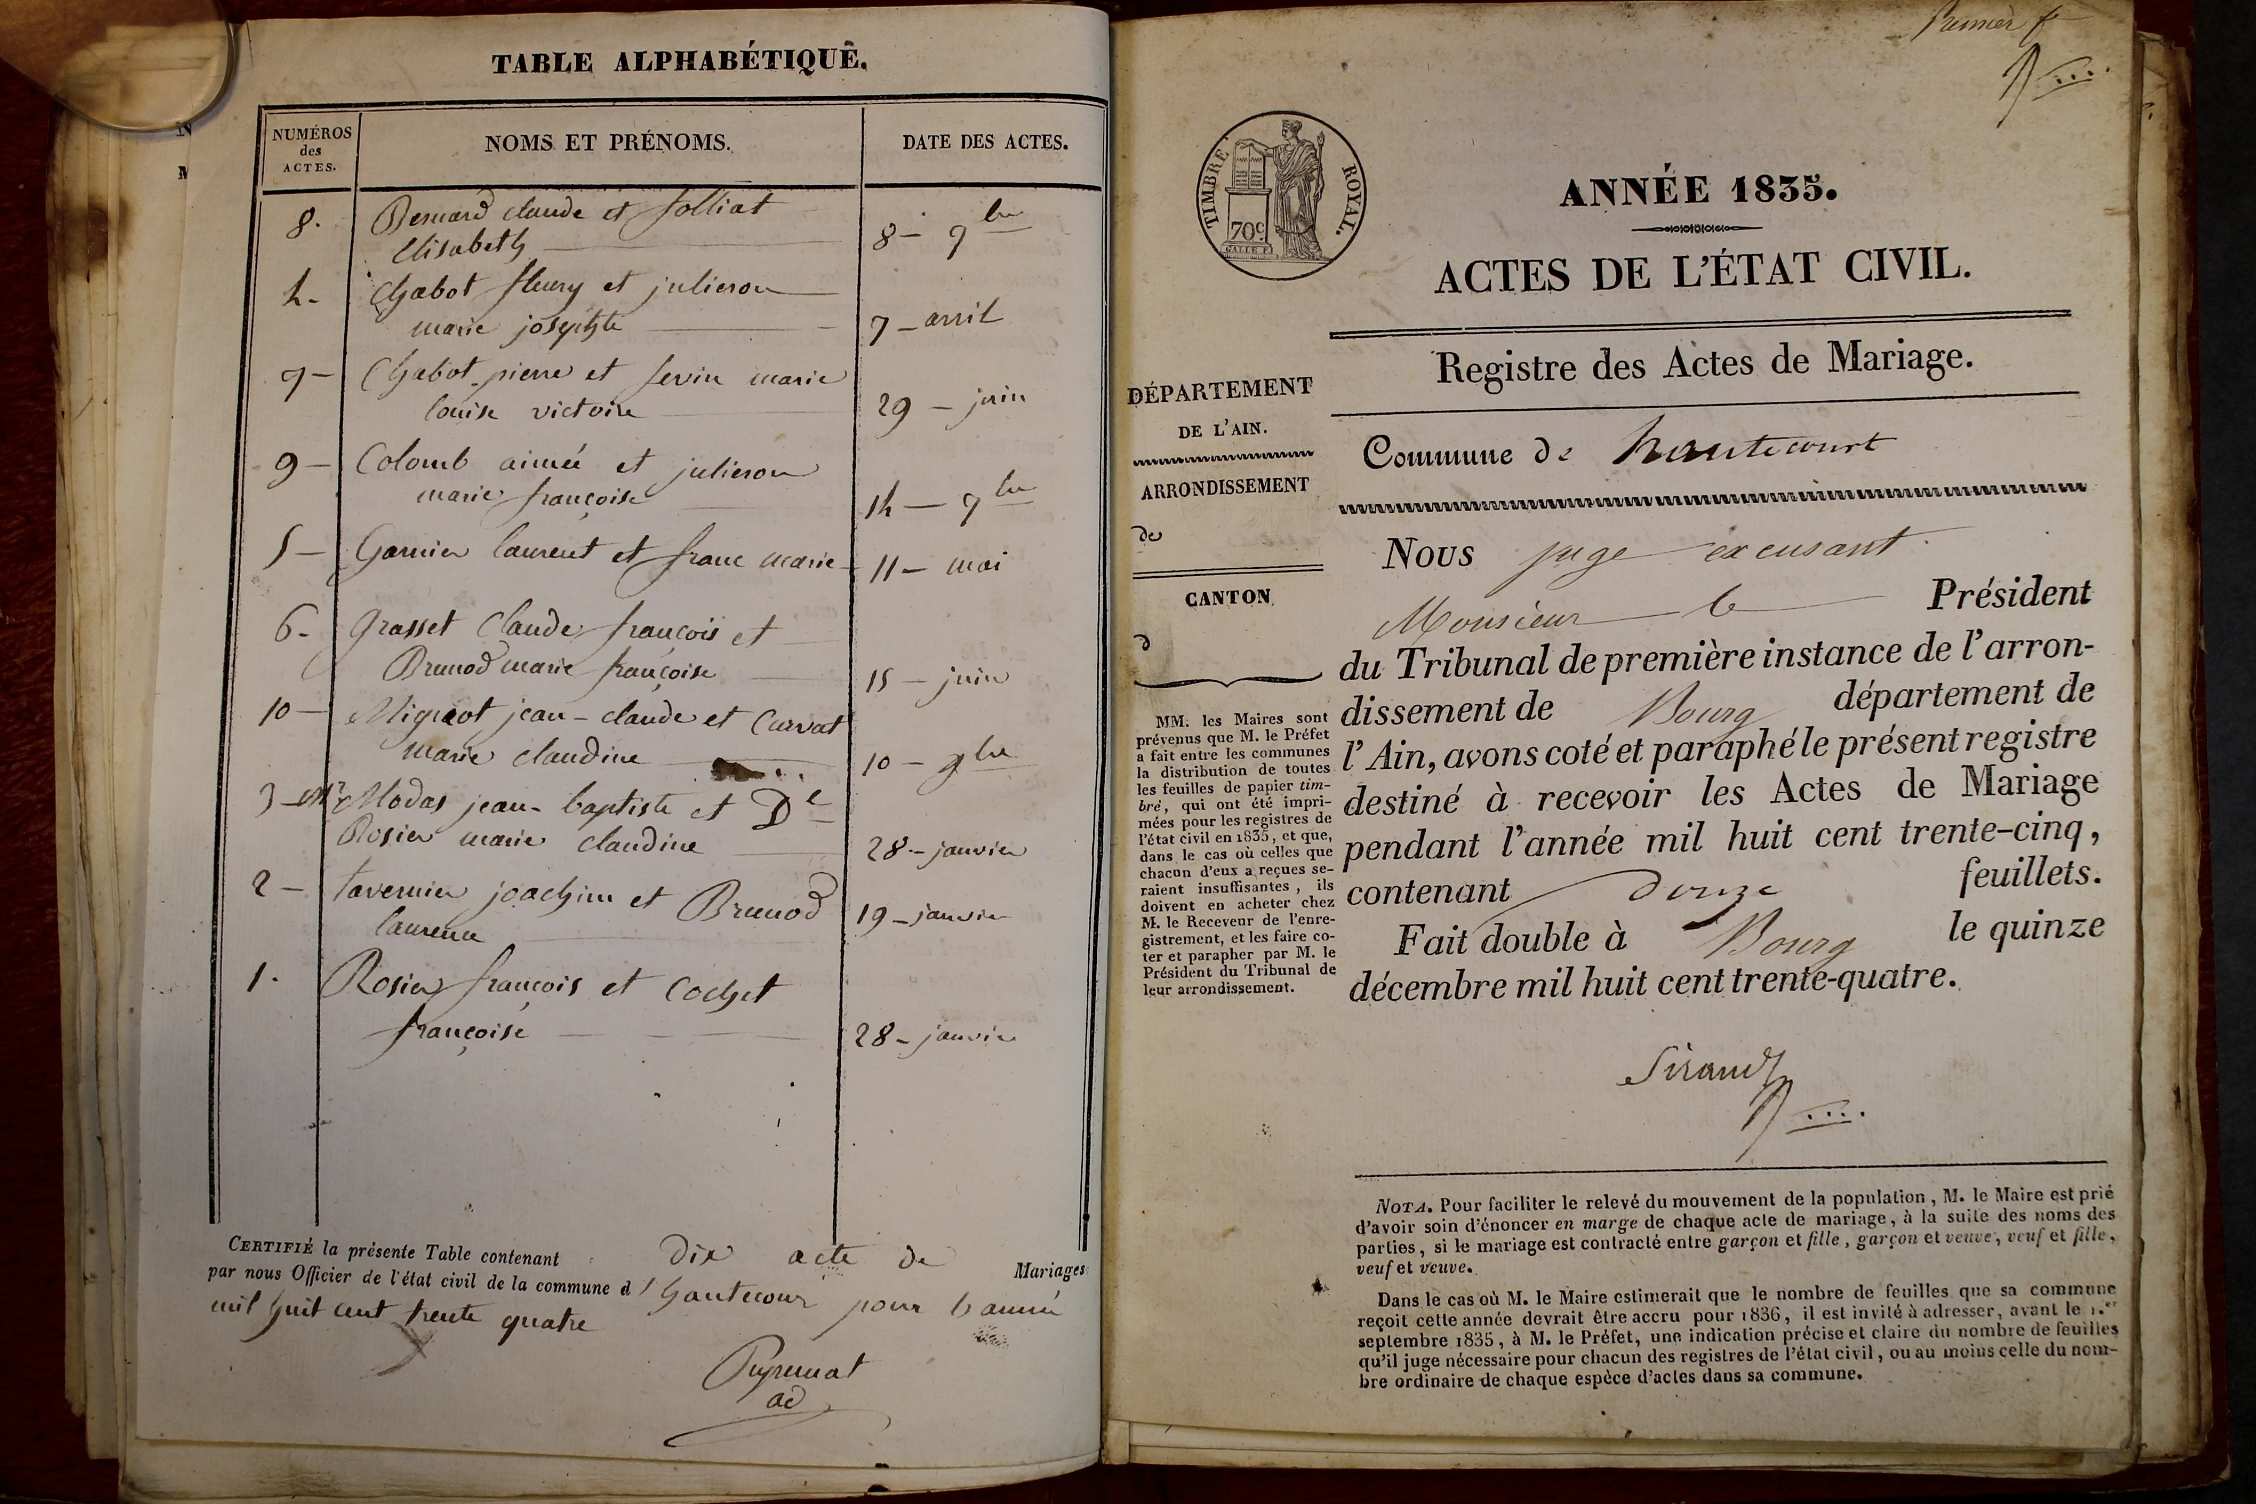 TABLE ALPHABÉTIQUE.
NUMÉROS
des
ACTES.
NOMS ET PRÉNOMS.
DATE DES ACTES.
8. Bernard claude et folliat
Elisabeth
8 - 9bre
4. Chabot fleury et julieron
marie josephte
7 - avril
7 - Chabot pierre et fevin marie
louise victoire
29 - juin
9 - Colomb aimée et julieron
marie françoise
14 - 9bre
5 - Garnier laurent et franc marie
11 - mai
6 - Grasset Claude françois et
Brunod marie françoise
15 - juin
10 - Mignot jean-claude et Curvat
marie claudine
10 - 9bre
3 - Mr Modas jean-baptiste et Dle
Rosier marie claudine
28 - janvier
2 - tavernier joachim et Brunod
laurence
19 - janvier
1. Rosier françois et Cochet
françoise
28 - janvier
CERTIFIÉ la présente Table contenant dix acte de Mariages
par nous Officier de l'état civil de la commune d'hautecour pour l'année
mil huit cent trente quatre
ad
Premier
TIMBRE ROYAL.
70c.
ANNÉE 1835.
ACTES DE L'ÉTAT CIVIL.
Registre des Actes de Mariage.
DÉPARTEMENT
DE L'AIN.
ARRONDISSEMENT
de
CANTON
d
MM. les Maires sont
prévenus que M. le Préfet
a fait entre les communes
la distribution de toutes
les feuilles de papier tim-
bré, qui ont été impri-
mées pour les registres de
l'état civil en 1835, et que,
dans le cas où celles que
chacun d'eux a reçues se-
raient insuffisantes, ils
doivent en acheter chez
M. le Receveur de l'enre-
gistrement, et les faire co-
ter et parapher par M. le
Président du Tribunal de
leur arrondissement.
Commune de hautecourt
Nous juge excusant
Monsieur le Président
du Tribunal de première instance de l'arron-
dissement de Bourg département de
l'Ain, avons coté et paraphé le présent registre
destiné à recevoir les Actes de Mariage
pendant l'année mil huit cent trente-cinq,
contenant douze feuillets.
Fait double à Bourg le quinze
décembre mil huit cent trente-quatre.
Sirand
NOTA. Pour faciliter le relevé du mouvement de la population, M. le Maire est prié
d'avoir soin d'énoncer en marge de chaque acte de mariage, à la suite des noms des
parties, si le mariage est contracté entre garçon et fille, garçon et veuve, veuf et fille,
veuf et veuve.
Dans le cas où M. le Maire estimerait que le nombre de feuilles que sa commune
reçoit cette année devrait être accru pour 1836, il est invité à adresser, avant le 1.er
septembre 1835, à M. le Préfet, une indication précise et claire du nombre de feuilles
qu'il juge nécessaire pour chacun des registres de l'état civil, ou au moins celle du nom-
bre ordinaire de chaque espèce d'actes dans sa commune.